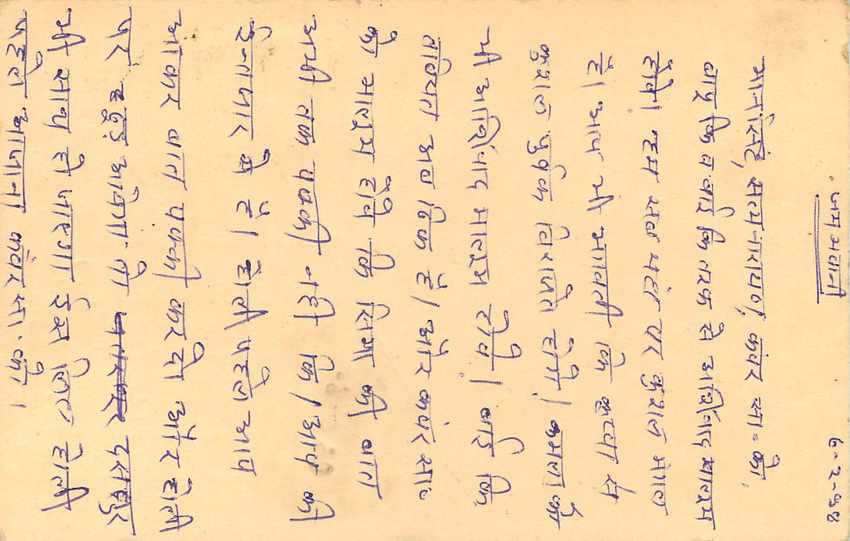 जय भवानी
6-2-94
मानसिंह, सत्यनारायण, कंवर सा॰ को,
बापु कि व बाई कि तरफ से आर्शिवाद मालुम
होवे। हम सब यहां पर कुशल मंगल
है। आप भी भगवती कि कृपा से
कुशल पुर्वक विराजते होंगे। कमला को
भी आर्शिवाद मालुम होवे। बाई कि
तबियत अब ठिक है। और कवंर सा॰
को मालुम होवे कि सिमा की बात
अभी तक पक्की नही कि। आप की
ईन्तजार मे है। होली पहले आप
आकर बात पक्की कर दो और होली
पर ढुढ़ आवेगा तो दसतुर
भी साथ हो जाएगा ईस लिए होली
पहले आजाना कंवर सा॰ को।